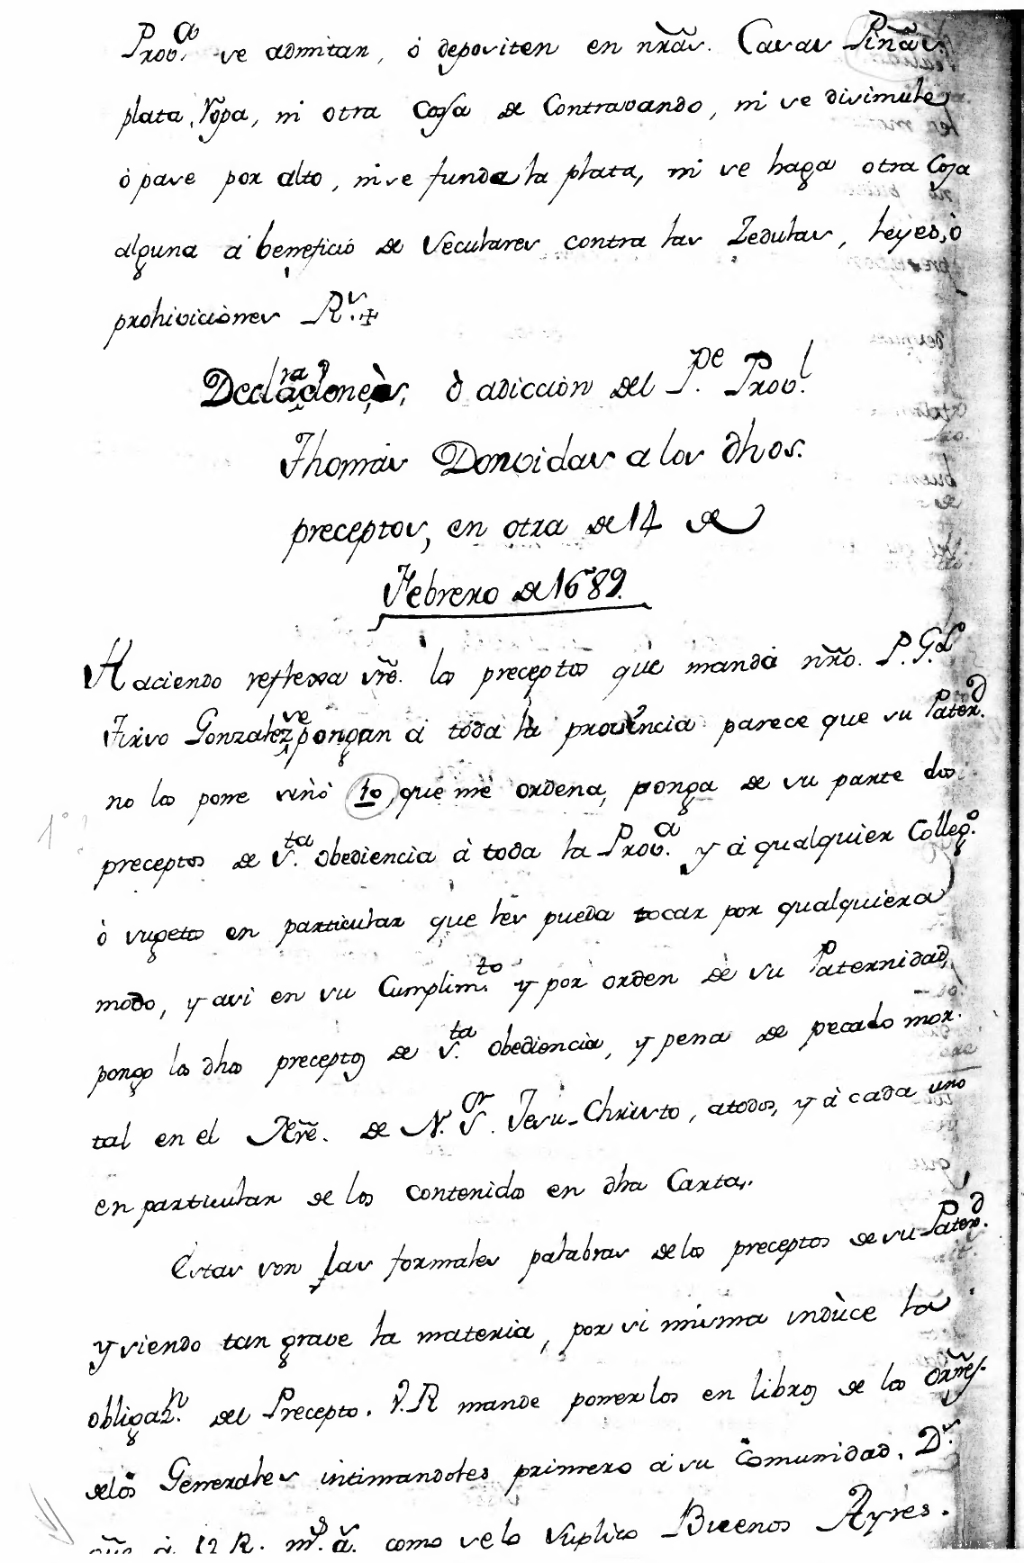 Prov.ª se admitan, ò depositen en nr̃as. Casas Piñas.
plata, Ropa, ni otra Cosa de Contravando, ni se disimule
ò pase por alto, ni se funda la plata, ni se haga otra Cosa
alguna à beneficio de Seculares contra las Zedulas, leyes, ò
prohiviciònes R.s +
Declaraciones, ò adiccion del P.e Prov.l
Thomàs Donvidas a los dhos.
preceptos, en otra de 14 de
Febrero de 1689.
Haciendo reflexa sr̃e. los preceptos que manda nr̃o. P. G.l
Tirso Gonzalez se pongan à toda la provincia parece que su Patern.d
no los pone sinò lo, que me ordena, ponga de su parte dos
preceptos de s.ta obediencia à toda la Prov.a y à qualquier Colleg.o
ò sugetto en particular que les pueda tocar por qualquiera
modo, y asi en su Cumplim.to y por orden de su Paternidad,
pongo los dhos preceptos de s.ta obediencia, y pena de pecado mor-
tal en el Nr̃e. de N. S.or Jesu-Christo, atodos, y à cada uno
en particular de los contenidos en dha Carta.
Estas son las formales palabras de los preceptos de su Patern.d
y siendo tan grave la materia, por si misma indùce la
obligaz.n del Precepto. V.R mande ponerlos en libros de los Orñes.
delos Generales intimandoles primero à su Comunidad. D.s
gũe à V R. m.s a.s como se lo suplico Buenos Ayres.